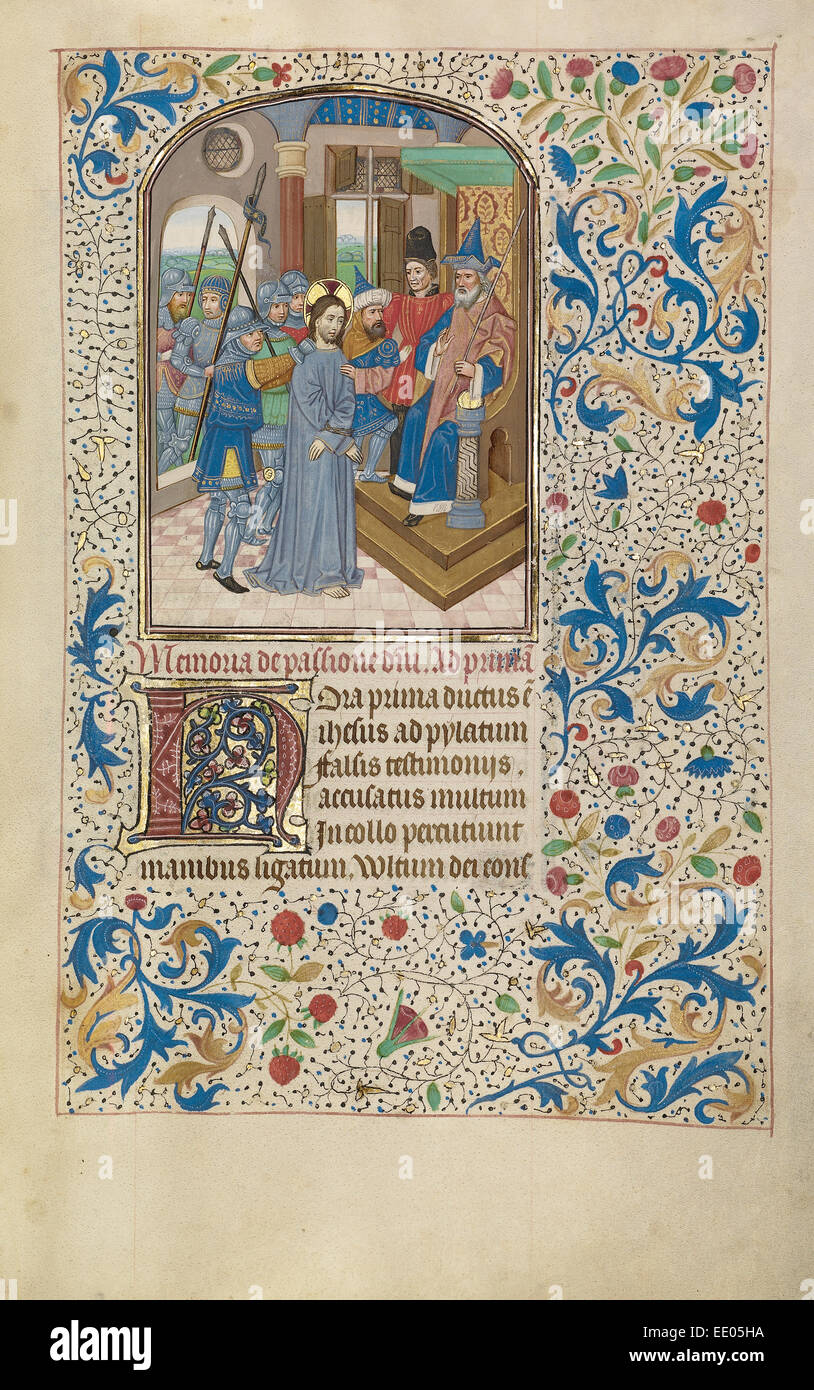 Memoria de passione dñi. Ad primã
Hora prima ductus ẽ
ihesus ad pylatum
falsis testimonijs,
accusatus multum
In collo percutiunt
manibus ligatum, Vultum dei conſ
alamy stock photo
EE05HA
www.alamy.com